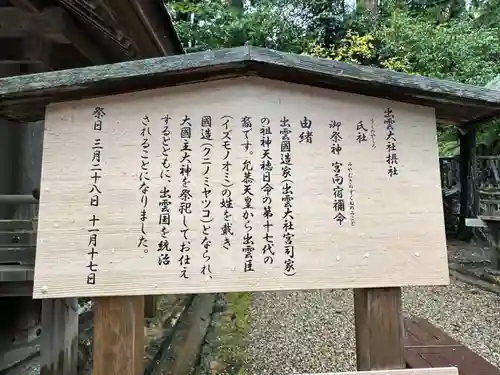 出雲大社摂社
うじのやしろ
氏社
みやむきすくねのみこと
御祭神 宮向宿禰命
由緒
出雲國造家(出雲大社宮司家)
の祖神天穂日命の第十七代の
裔です。允恭天皇から出雲臣
(イズモノオミ)の姓を戴き
國造(クニノミヤツコ)となられ、
大國主大神を祭祀してお仕え
するとともに、出雲国を統治
されることになりました。
祭日 三月二十八日 十一月十七日